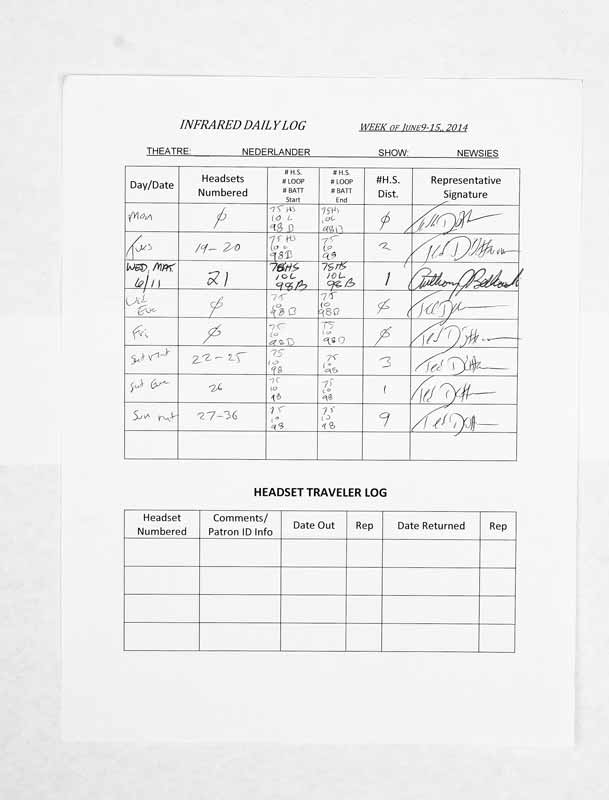 INFRARED DAILY LOG WEEK OF JUNE9-15, 2014
THEATRE: NEDERLANDER SHOW: NEWSIES
Day/Date Headsets Numbered # H.S. # LOOP # BATT Start # H.S. # LOOP # BATT End #H.S. Dist. Representative Signature
Mon Ø 75 HS 10 L 98 B 75HS 10 L 98B Ø
Tues 19-20 75 HS 10 L 98B 75 10 98 2
WED. MAT. 6/11 21 75HS 10L 98B 75HS 10L 98B 1
Wed Eve Ø 75 10 98 B 75 10 98 B Ø
Fri Ø 75 10 98B 75 10 98B Ø
Sat mat 22-25 75 10 98 75 10 98 3
Sat Eve 26 75 10 98 75 10 98 1
Sun mat 27-36 75 10 98 75 10 98 9
HEADSET TRAVELER LOG
Headset Numbered Comments/ Patron ID Info Date Out Rep Date Returned Rep